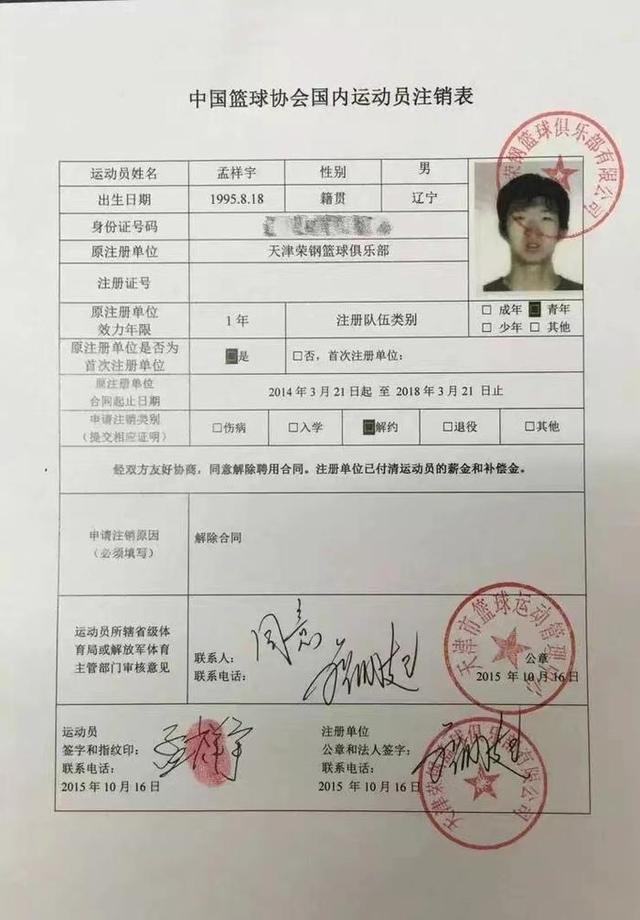 中国篮球协会国内运动员注销表
运动员姓名 孟祥宇 性别 男
出生日期 1995.8.18 籍贯 辽宁
身份证号码
原注册单位 天津荣钢篮球俱乐部
注册证号
原注册单位
效力年限 1 年 注册队伍类别 □ 成年 □ 青年
□ 少年 □ 其他
原注册单位是否为
首次注册单位 □是 □否，首次注册单位：
原注册单位
合同起止日期 2014 年 3 月 21 日起 至 2018 年 3 月 21 日止
申请注销类别
（提交相应证明） □伤病 □入学 □解约 □退役 □其他
经双方友好协商，同意解除聘用合同。注册单位已付清运动员的薪金和补偿金。
申请注销原因
（必须填写） 解除合同
运动员所辖省级体
育局或解放军体育
主管部门审核意见
同意
联系人：
联系电话：
公章
2015 年 10 月 16 日
运动员
签字和指纹印：
孟祥宇
联系电话：
2015 年 10 月 16 日
注册单位
公章和法人签字：
联系电话：
2015 年 10 月 16 日
荣钢篮球俱乐部有限公司
天津市篮球运动管理中心
天津荣钢篮球俱乐部有限公司